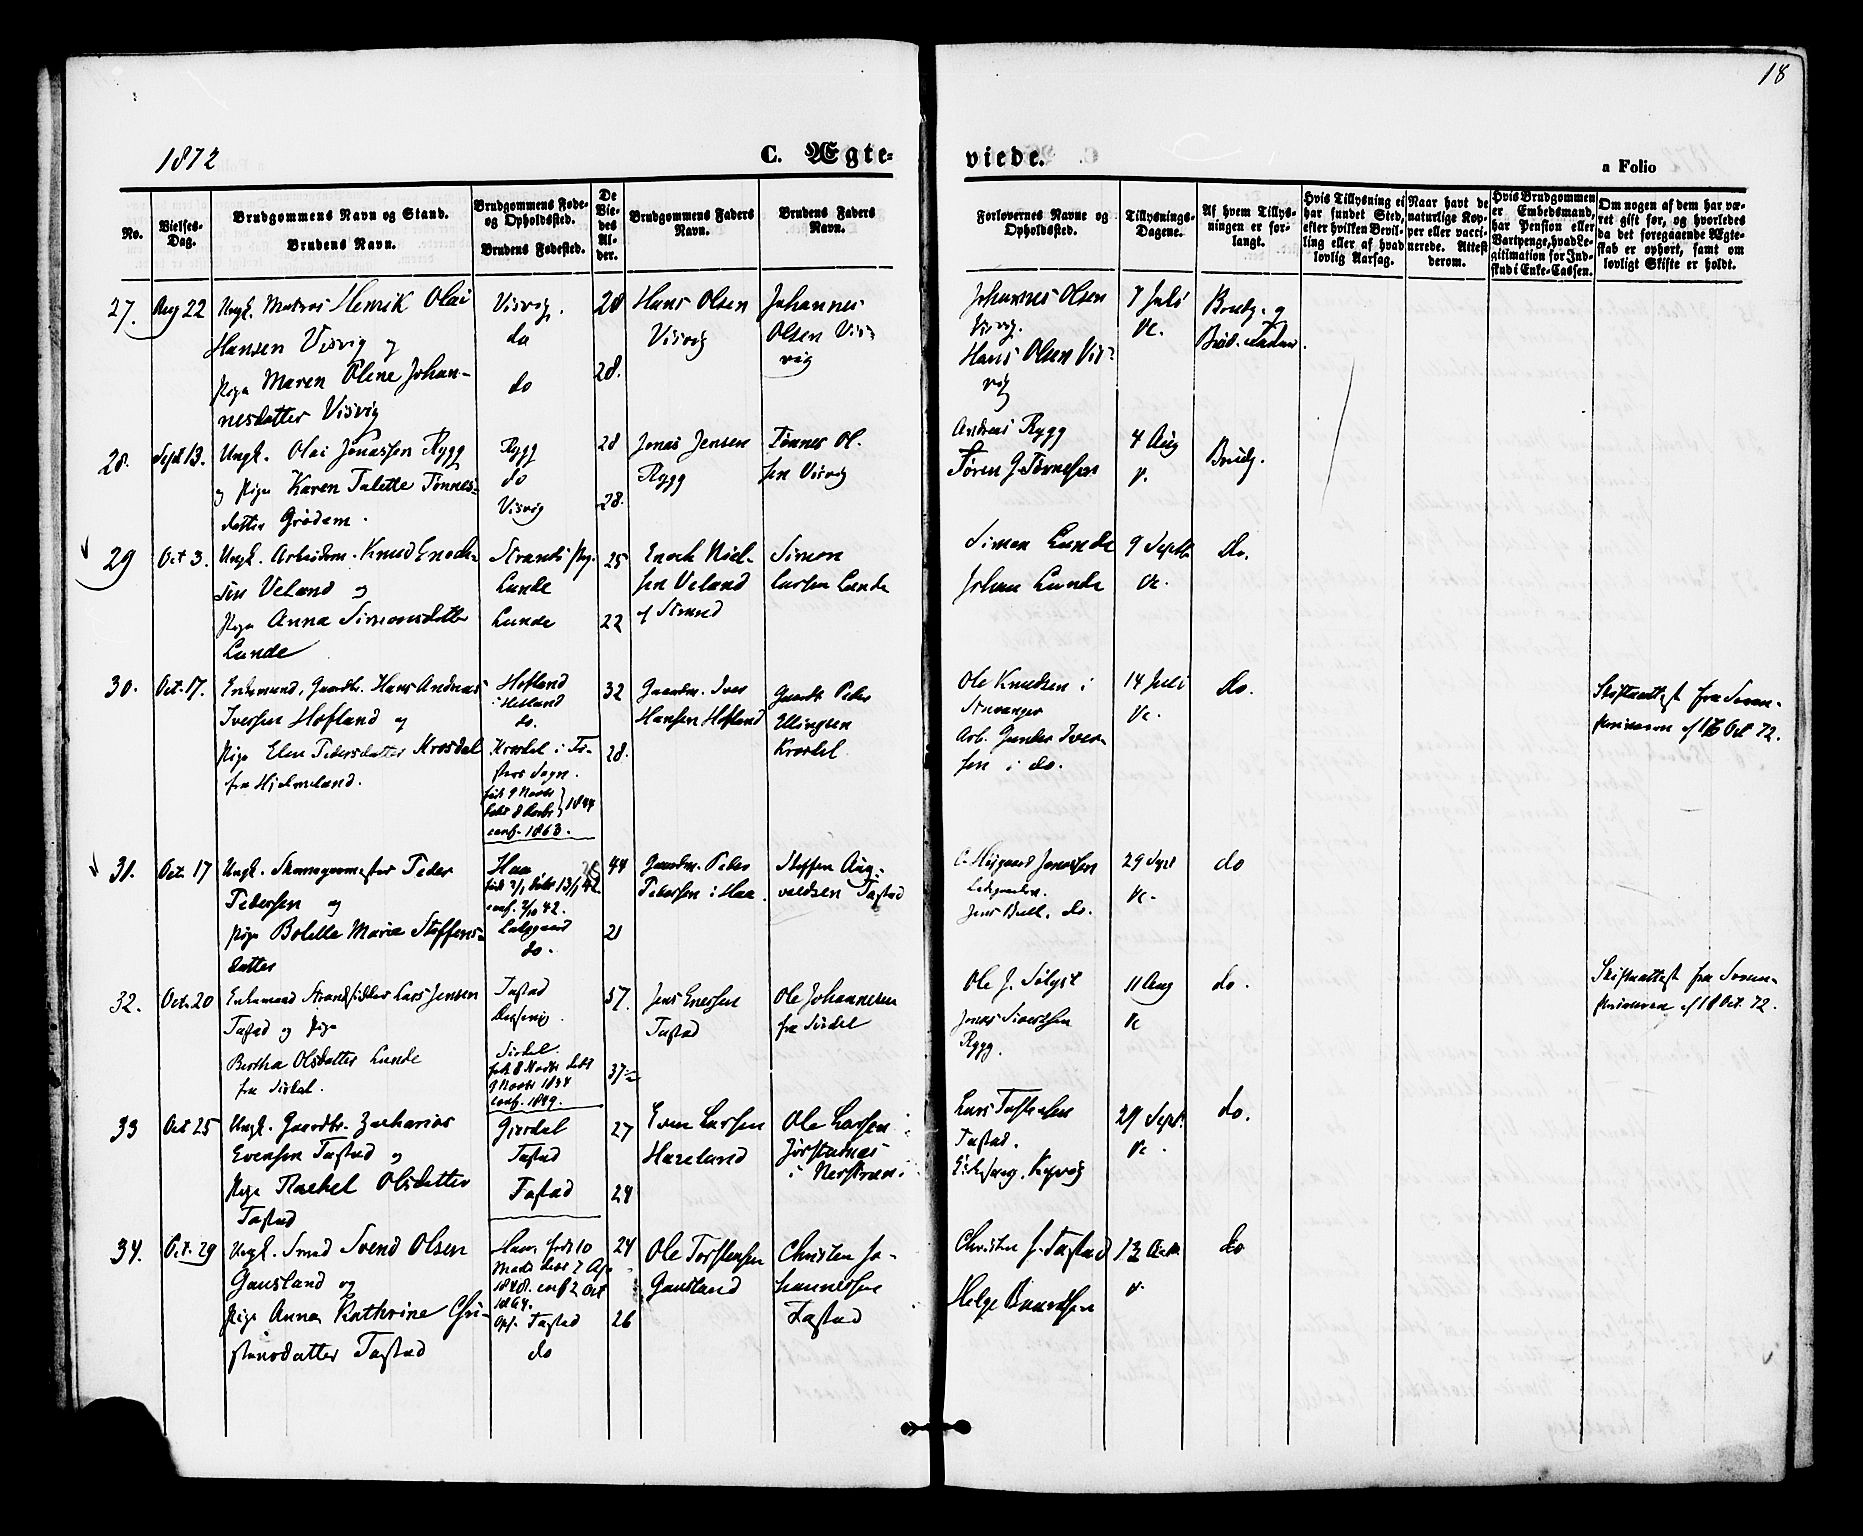 18
1872
C. Ægte-
viede.
a Folio
No.
Vielses-
Dag.
Brudgommens Navn og Stand.
Brudens Navn.
Brudgommens Føde-
og Opholdssted.
Brudens Fødested.
De
Vie-
des
Al-
der.
Brudgommens Faders
Navn.
Brudens Faders
Navn.
Forlovernes Navne og
Opholdssted.
Tillysnings-
Dagene.
Af hvem Tillys-
ningen er for-
langt.
Hvis Tillysning ei
har fundet Sted,
efter hvilken Bevil-
ling eller af hvad
lovlig Aarsag.
Naar havt de
naturlige Kop-
per eller vacci-
nerede. Attest
derom.
Hvis Brudgommen
er Embedsmand,
har Pension eller
Vartpenge, hvad Le-
gitimation for Ind-
skud i Enke-Cassen.
Om nogen af dem har væ-
ret gift før, og hvorledes
da det foregaaende Ægte-
skab er ophørt, samt om
lovligt Skifte er holdt.
27.
Aug 22
Ungk. Matros Henrik Olai
Hansen Visvig og
Pige Maren Oline Johan-
nesdatter Visvig
Visvig.
do
do
28
28.
Hans Olsen
Visvig
Johannes
Olsen Vis-
vig
Johannes Olsen
Visvig.
Hans Olsen Vis-
vig
7 Juli
Brudg. og
28.
Sept 13.
Ungk. Olai Jonassen Rygg
og Pige Karen Talette Tønnes-
datter Grødem.
Rygg
do
Visvig
28
28.
Jonas Jensen
Rygg
Tønnes Ol-
sen Visvig
Andreas Rygg
Søren J. Tønnesen
4 Aug
Brudg.
29
Oct 3.
Ungk. Arbeidsm. Knud Enoch-
sen Veland og
Pige Anna Simonsdatter
Lunde
Strands Pg.
Lunde
Lunde
25
22
Enoch Niel-
sen Veland
af Strand
Simon
Larsen Lunde
Simon Lunde
Johan Lunde
9 Septb
do.
30.
Oct. 17.
Enkemand, Gaardbr. Hans Andreas
Iversen Hofland og
Pige Elen Pedersdatter Krosdal
fra Hjelmeland.
Hofland
i Hetland
do.
født 9 Novbr
1844
conf. 1863.
32
28.
Gaardm. Iver
Hansen Hofland
Gaardb Peder
Ellingsen
Ole Knudsen i
Stavanger
Arb. Gunder Iver-
sen i do.
14 Juli
do.
Skifteattest fra Soren-
skriveren af 16 Oct 72.
31.
Oct. 17
Ungk. Peder
Pedersen og
Pige Bolette Maria Steffens-
datter
Haa
conf. 2/10 42.
Ladegaard
do.
44
21
Gaardm. Peder
Pedersen i Haa.
Steffen Aug-
valdsen Tastad
Jens Bull, do.
29 Sept
do
32.
Oct. 20
Enkemand Strandsidder Lars Jensen
Tastad og Pige
Bertha Olsdatter Lunde
fra Sirdal.
Tastad
Sirdal.
9 Novbr 1834
conf. 1849.
57.
37
Tastad
Ole Johannesen
fra Sirdal
Ole J.
Jonas Sivertsen
Rygg.
11 Aug
do.
Skifteattest fra Soren-
skriveren af 18 Oct. 72.
33
Oct 25
Ungk. Gaardbr. Zacharias
Evensen Tastad og
Pige Rachel Olsdatter
Tastad
Tastad
Tastad
27
24
Even Larsen
Haaland
Ole Larsen
i Nerstrand
Tastad.
29 Sept.
do.
34.
Oct. 29
Ungk. Smed Svend Olsen
Gausland og
Pige Anna Kathrine Chri-
stensdatter Tastad
Haa, født 10
Marts døbt 7 Ap
1848. conf 2 Oct
1864.
Oph. Tastad
do
24
26
Ole Torstensen
Gausland
Christen Jo-
hannessen
Tastad
Christen J. Tastad
Helge Baardsen
13
do